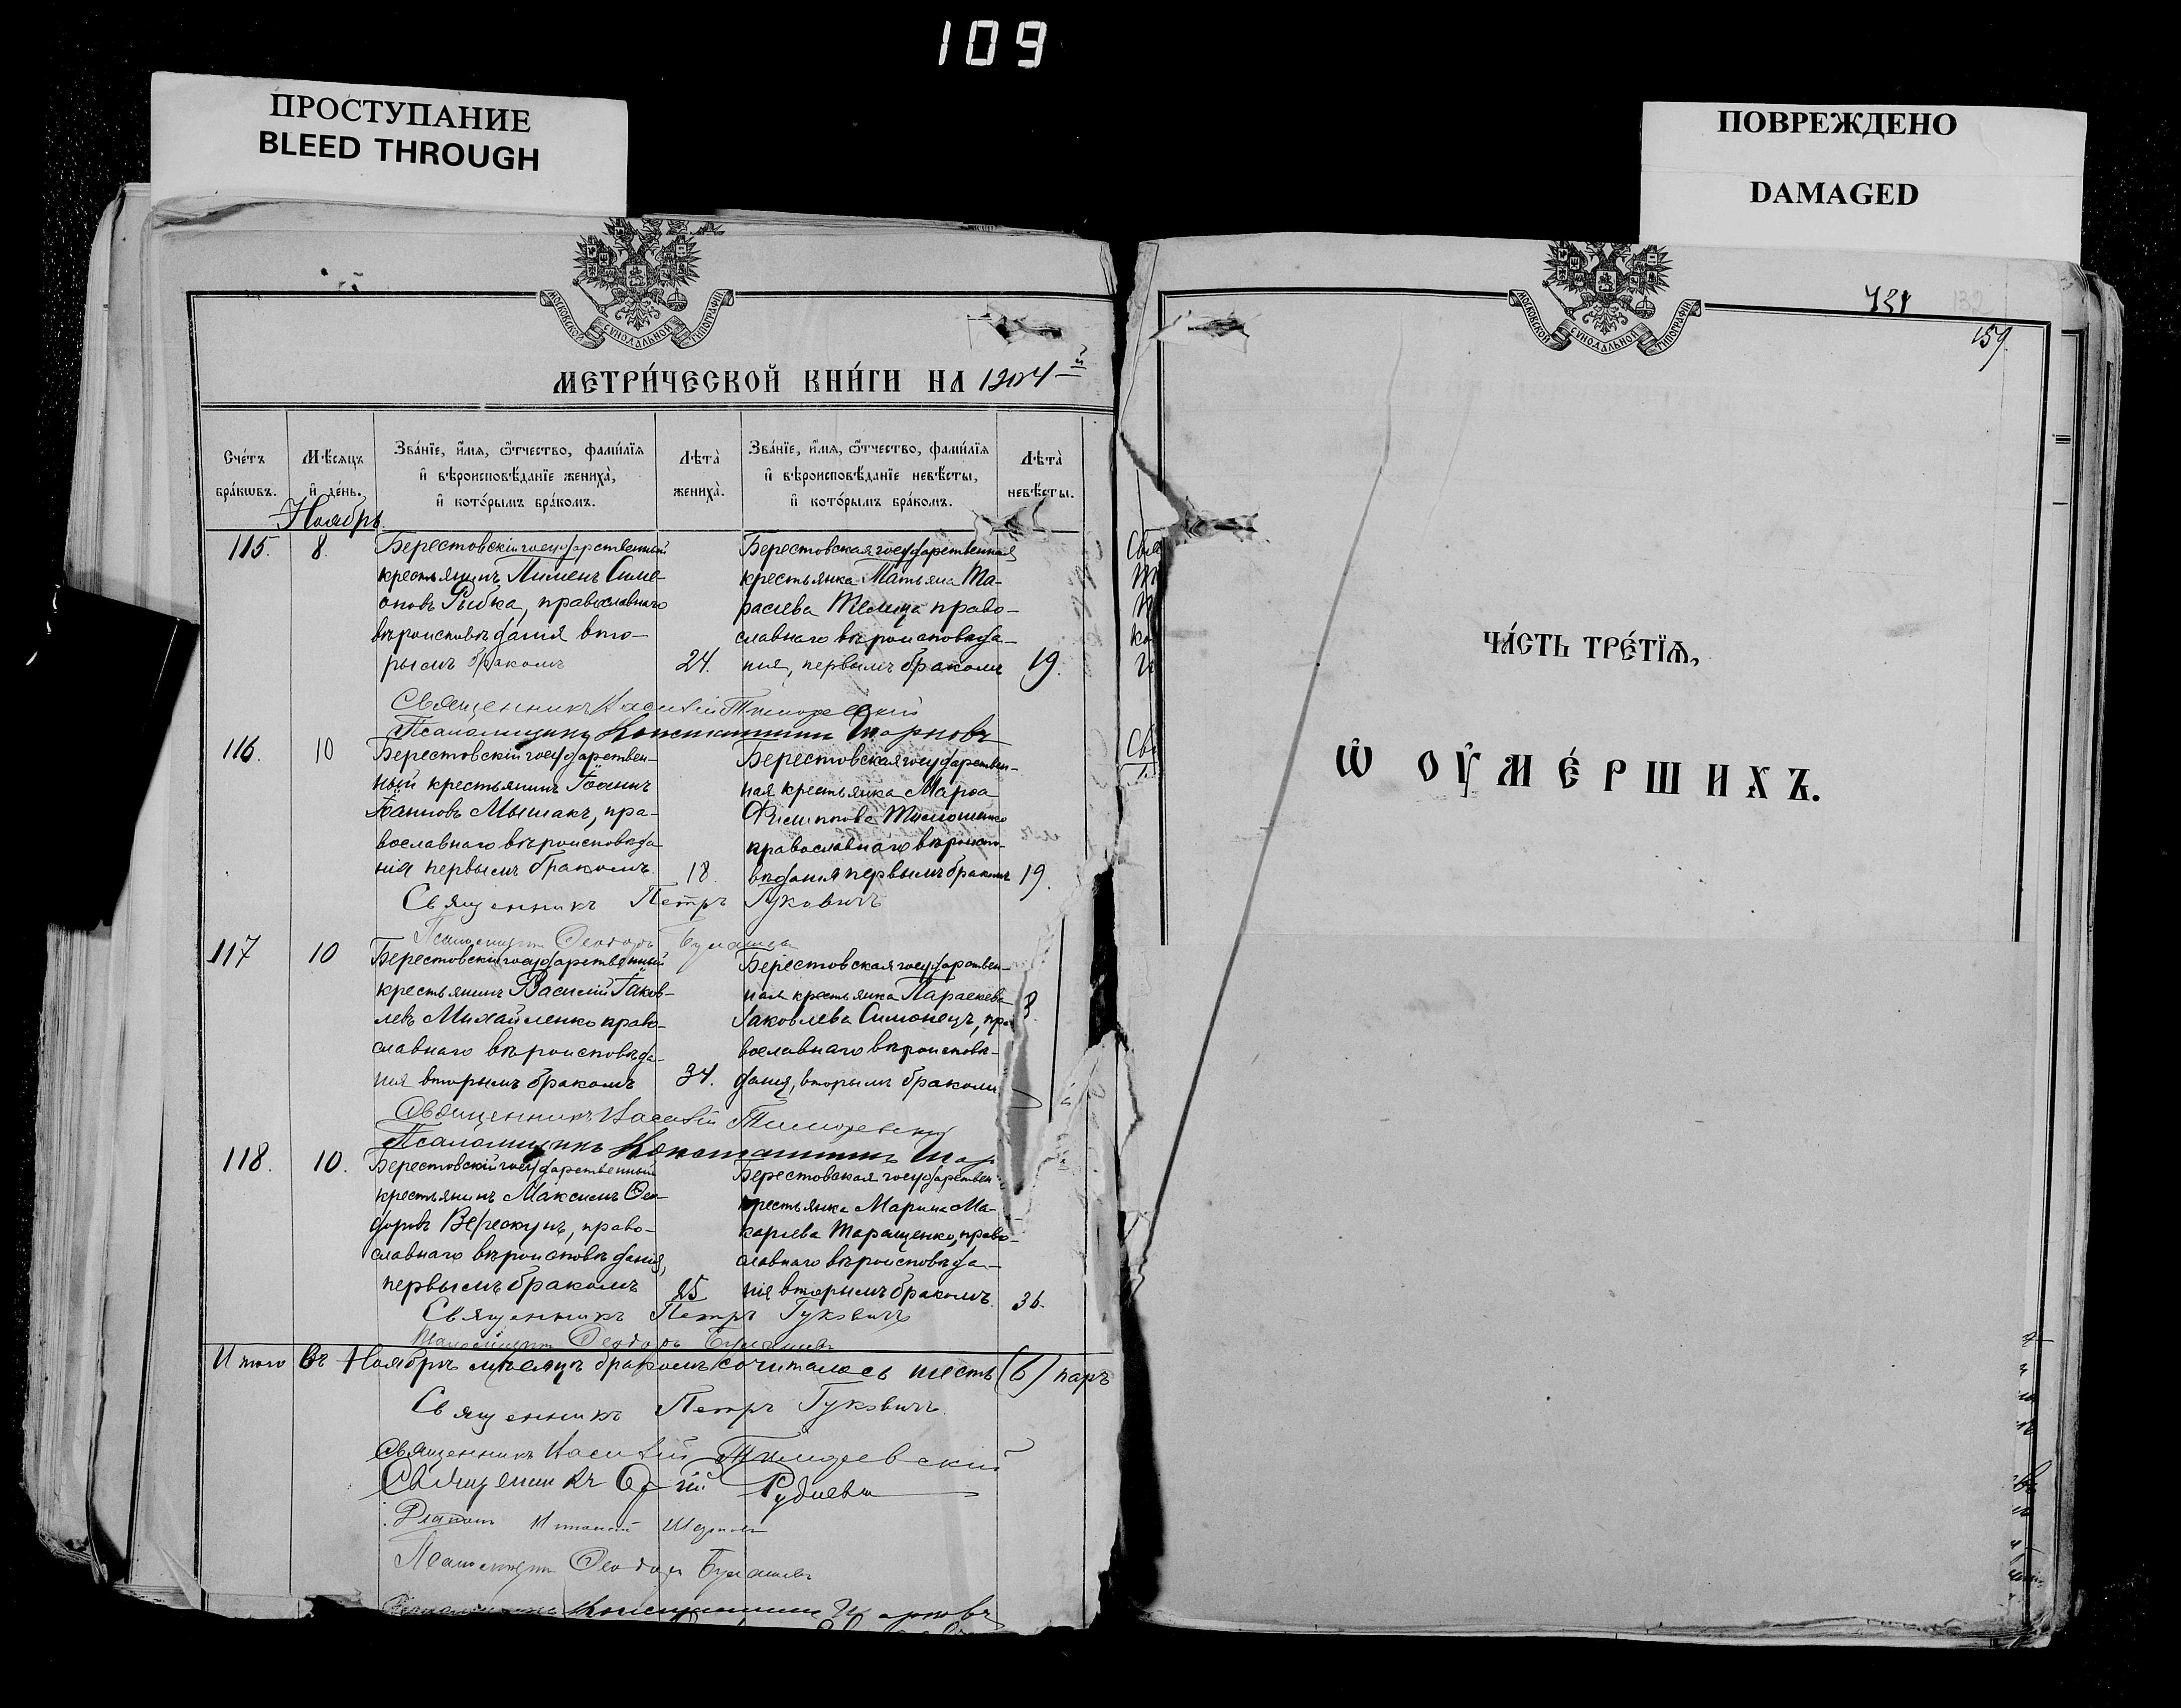 109
ПРОСТУПАНИЕ
BLEED THROUGH
ПОВРЕЖДЕНО
DAMAGED
МОСКОВСКОЙ СѴНОДАЛЬНОЙ ТИПОГРАФІИ
МЕТРИ́ЧЕСКОЙ КНИ́ГИ НА 1904й
Сче́тъ бра́кωвъ.
Мѣ́сяцъ и҆ де́нь.
Зва́нїе, и҆́мѧ, ѻ҆́тчество, фами́лїѧ
и҆ вѣроисповѣ́данїе жениха̀,
и҆ кото́рымъ бра́комъ.
Лѣта̀ жениха̀.
Зва́нїе, и҆́мѧ, ѻ҆́тчество, фами́лїѧ
и҆ вѣроисповѣ́данїе невѣ́сты,
и҆ кото́рымъ бра́комъ.
Лѣта̀ невѣ́сты.
Ноябрь
115. 8.
Берестовскій государственный
крестьянинъ Пименъ Симе-
оновъ Рыбка, православнаго
вѣроисповѣданія вто-
рымъ бракомъ 24.
Берестовская государственная
крестьянка Татьяна Та-
расіева Телица право-
славнаго вѣроисповѣда-
нія, первымъ бракомъ 19.
Священникъ Василій
Псаломщикъ Константинъ
116. 10
Берестовскій государствен-
ный крестьянинъ Іоаннъ
Іоанновъ Мышакъ, пра-
вославнаго вѣроисповѣда
нія первымъ бракомъ 18.
Берестовская государствен-
ная крестьянка Марѳа
Филиппова Тимошенко
православнаго вѣроиспо-
вѣданія первымъ бракомъ 19.
Священникъ Петръ Гуковичъ
Псаломщикъ Ѳеодоръ
117 10
Берестовскій государственный
крестьянинъ Василій Іаков-
левъ Михайленко право-
славнаго вѣроисповѣда-
нія вторымъ бракомъ 34.
Берестовская государствен-
ная крестьянка Параскева
Іаковлева Симонецъ, пра
вославнаго вѣроисповѣ-
данія, вторымъ бракомъ
Священникъ Василій
Псаломщикъ Константинъ
118. 10.
Берестовскій государственный
крестьянинъ Максимъ Ѳео
доровъ Верескунъ, право-
славнаго вѣроисповѣданія,
первымъ бракомъ 25
Берестовская государствен
крестьянка Марина Ма-
каріева Таращенко, право-
славнаго вѣроисповѣда-
нія вторымъ бракомъ. 36.
Священникъ Петръ Гуковичъ
Псаломщикъ Ѳеодоръ
Итого въ Ноябрѣ мѣсяцѣ бракомъ сочиталось шесть (6) паръ
Священникъ Петръ Гуковичъ
Священникъ Василій
Священникъ
Псаломщикъ Ѳеодоръ
Константинъ
МОСКОВСКОЙ СѴНОДАЛЬНОЙ ТИПОГРАФІИ
159.
ЧА́СТЬ ТРЕ́ТЇѦ,
Ѽ ОУ҆МЕ́РШИХЪ.